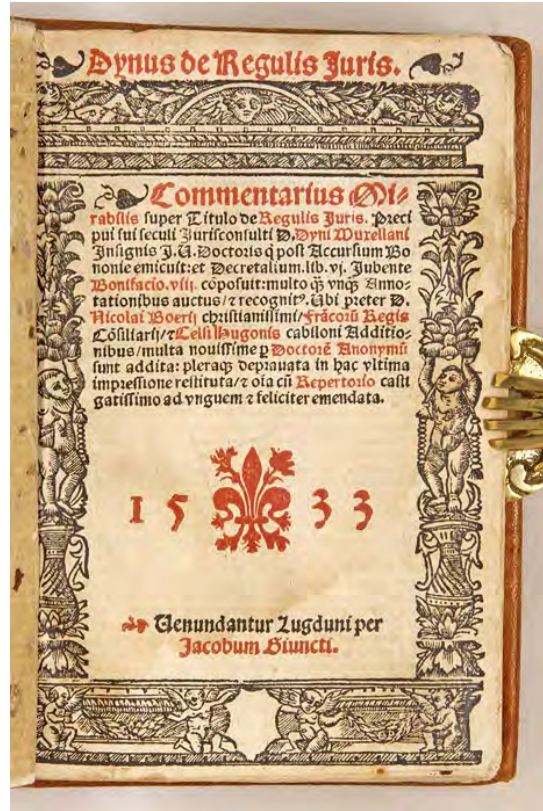 Dynus de Regulis Juris.
Commentarius Mi⸗
rabilis super Titulo de Regulis Juris. Preci
pui sui seculi Jurisconsulti D. Dyni Muxellani
Insignis J. U. Doctoris q̄ post Accursium Bo
nonie emicuit: et Decretalium. lib. vj. Jubente
Bonifacio. viij. cōposuit: multo q̄ꝫ vnq̄ꝫ Anno⸗
tationibus auctus/ ⁊ recognitꝰ. Ubi preter D.
Nicolai Boerij christianissimi/ frācorū Regis
Cōsiliarij/ ⁊ Celsi Hugonis cabiloni Additio⸗
nibus/ multa nouissime ꝑ Doctorē Anonymū
sunt addita: pleraqꝫ deprauata in hac vltima
impressione restituta/ ⁊ oīa cū Repertorio casti
gatissimo ad vnguem ⁊ feliciter emendata.
1 5 3 3
Venundantur Lugduni per
Jacobum Giuncti.